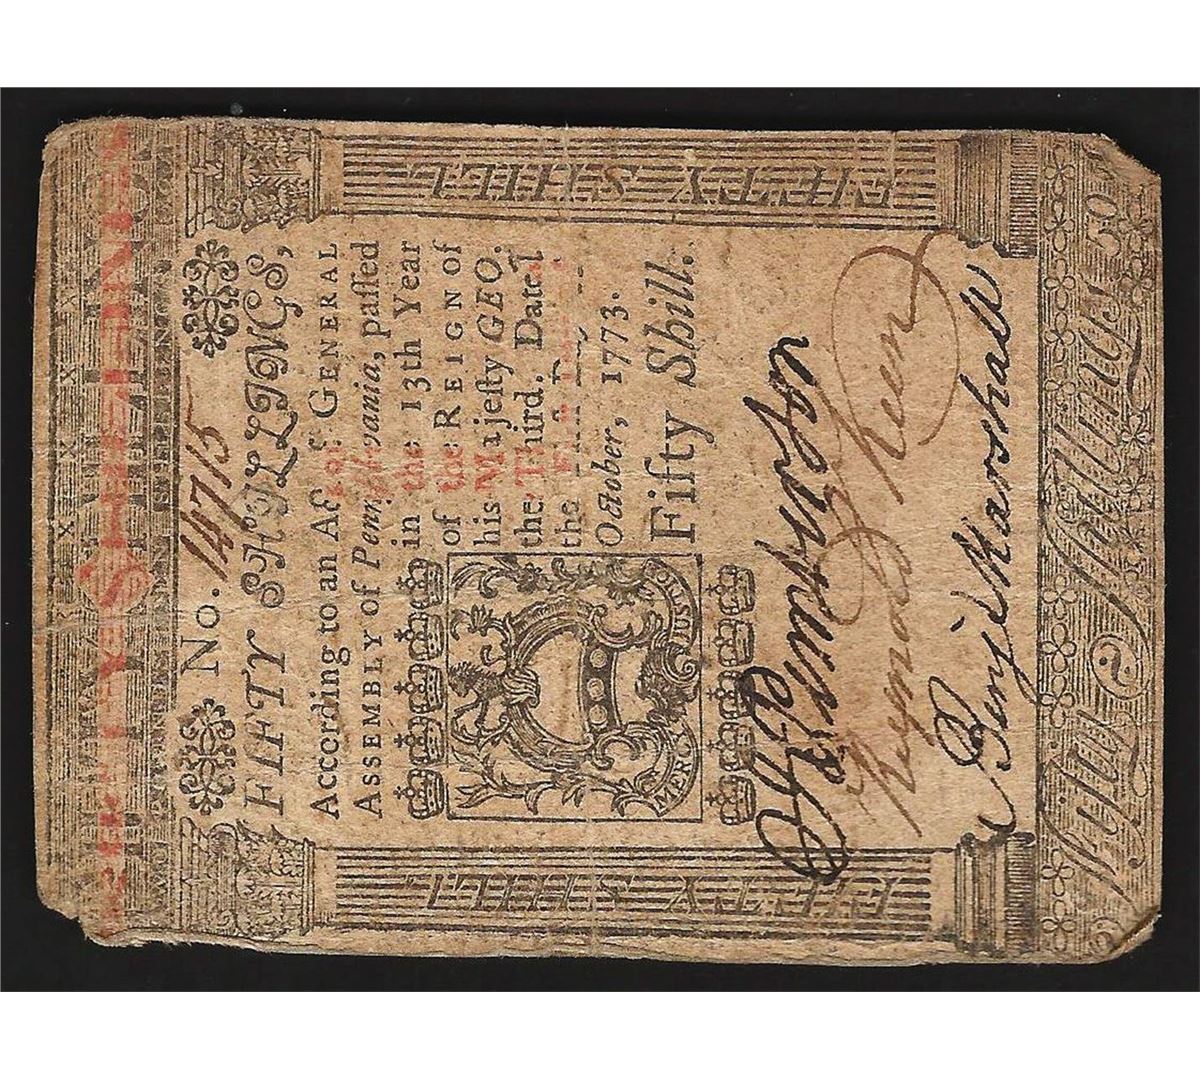 No. 14715
FIFTY SHILLINGS,
According to an Act of GENERAL
ASSEMBLY of Pennsylvania, passed
in the 13th Year
of the REIGN of
his Majesty GEO.
the Third. Dated
the
October, 1773.
Fifty Shill.
MERCY JUSTICE
Benj Marshall
FIFTY SHILL
FIFTY SHILL
Fifty Shillings 50